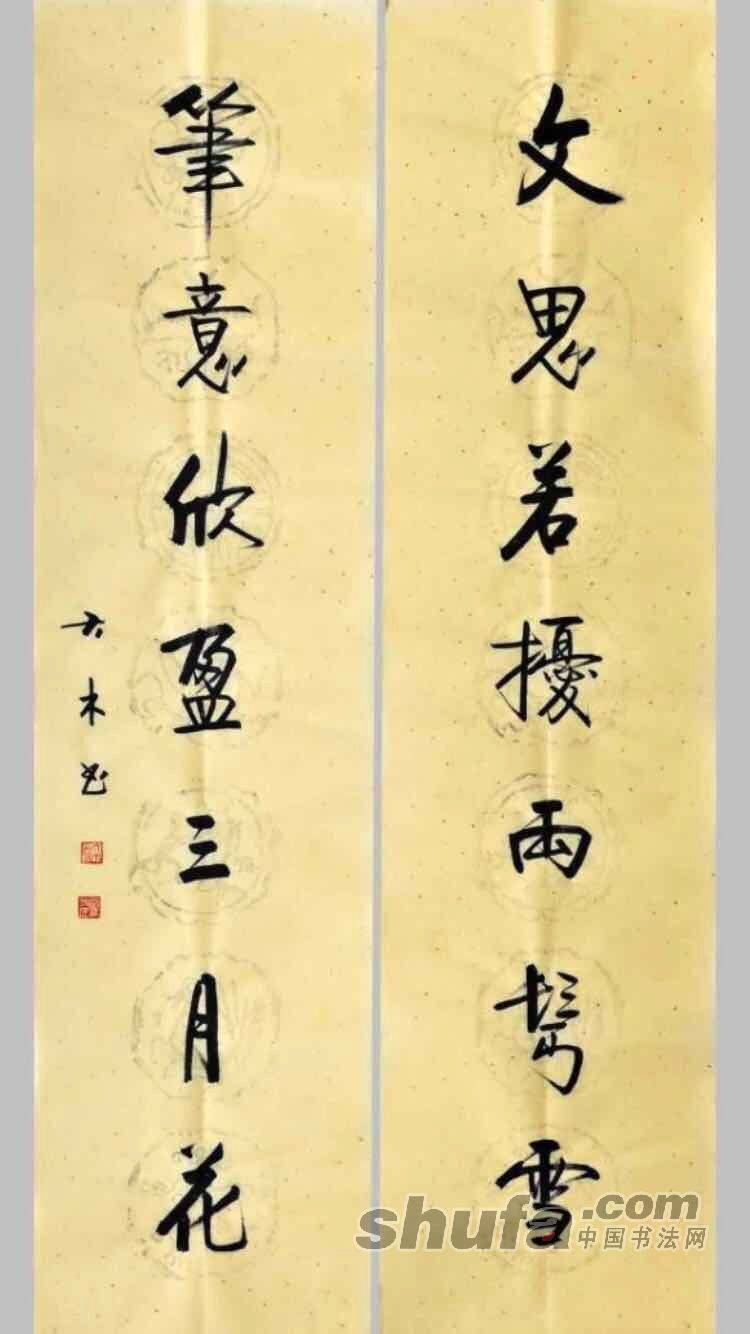 文思若擾兩鬢雪
筆意欣盈三月花
木书
shufa.com
中国书法网